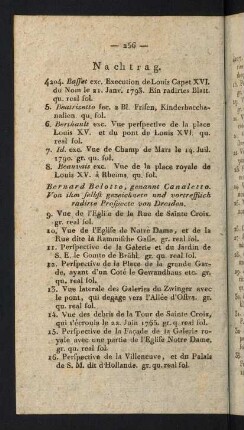 — 256 —
Nachtrag.
4204. Basset exc. Execution de Louis Capet XVI.
du Nom le 21. Janv. 1793. Ein radirtes Blatt.
qu. real fol.
5. Beatrizetto sc. 2 Bl. Frisen, Kinderbaccha-
nalien qu. fol.
6. Berthault exc. Vue perspective de la place
Louis XV. et du pont de Louis XVI. qu.
real fol.
7. Id. exc. Vue de Champ de Mars le 14. Juil.
1790. gr. qu. real fol.
8. Beauvais exc. Vue de la place royale de
Louis XV. à Rheims, qu. real fol.
Bernard Belotto, genannt Canaletto.
Von ihm selbst gezeichnete und vortreflich
radirte Prospecte von Dresden.
9. Vue de l'Eglise de la Rue de Sainte Croix.
gr. qu. real fol.
10. Vue de l'Eglise de Notre Dame, et de la
Rue dite la Rammische Gasse. gr. qu. real fol.
11. Perspective de la Galerie et du Jardin de
S. E. le Comte de Brühl. gr. qu. real fol.
12. Perspective de la Place de la grande Garde,
ayant d'un Coté le Gewandhaus etc. gr.
qu. real fol.
13. Vue laterale des Galeries du Zwinger avec
le pont, qui degage vers l'Allée d'Ostra. gr.
qu. real fol.
14. Vue des debris de la Tour de Sainte Croix,
qui s'écroule le 22. Juin 1765. gr. qu. real fol.
15. Perspective de la Façade de la Galerie ro-
yale avec une partie de l'Eglise Notre Dame.
gr. qu. real fol.
16. Perspective de la Villeneuve, et du Palais
de S. M. dit d'Hollande. gr. qu. real fol.